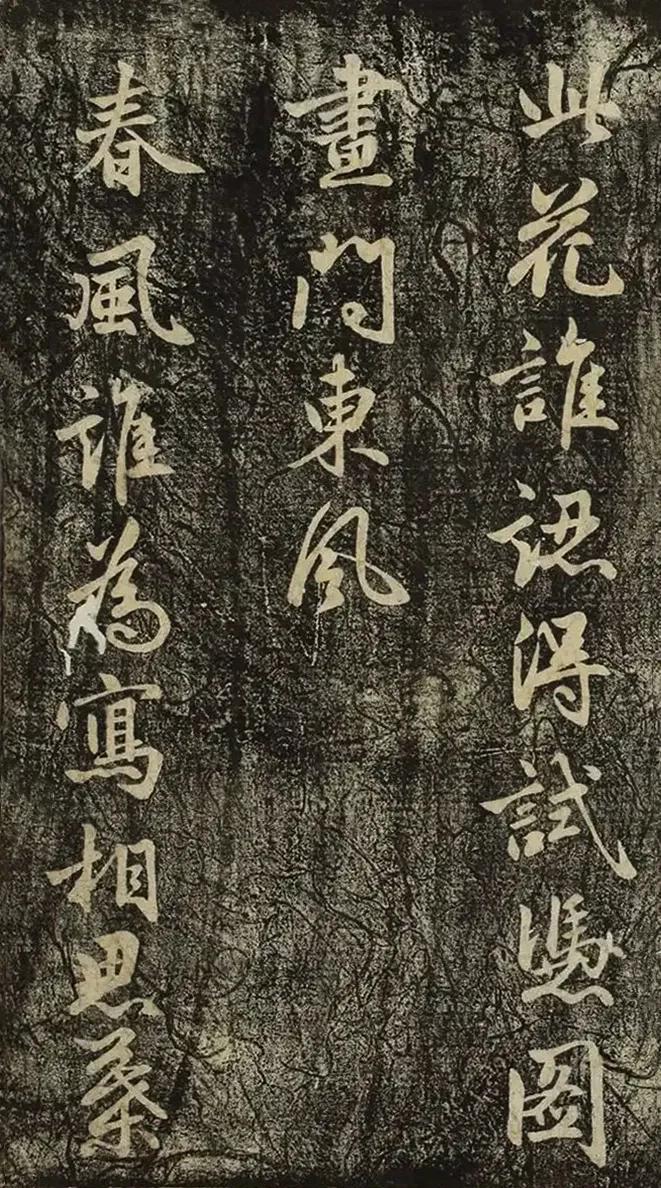 此花誰認得試憑圖
畫問東風
春風誰為寫相思葉